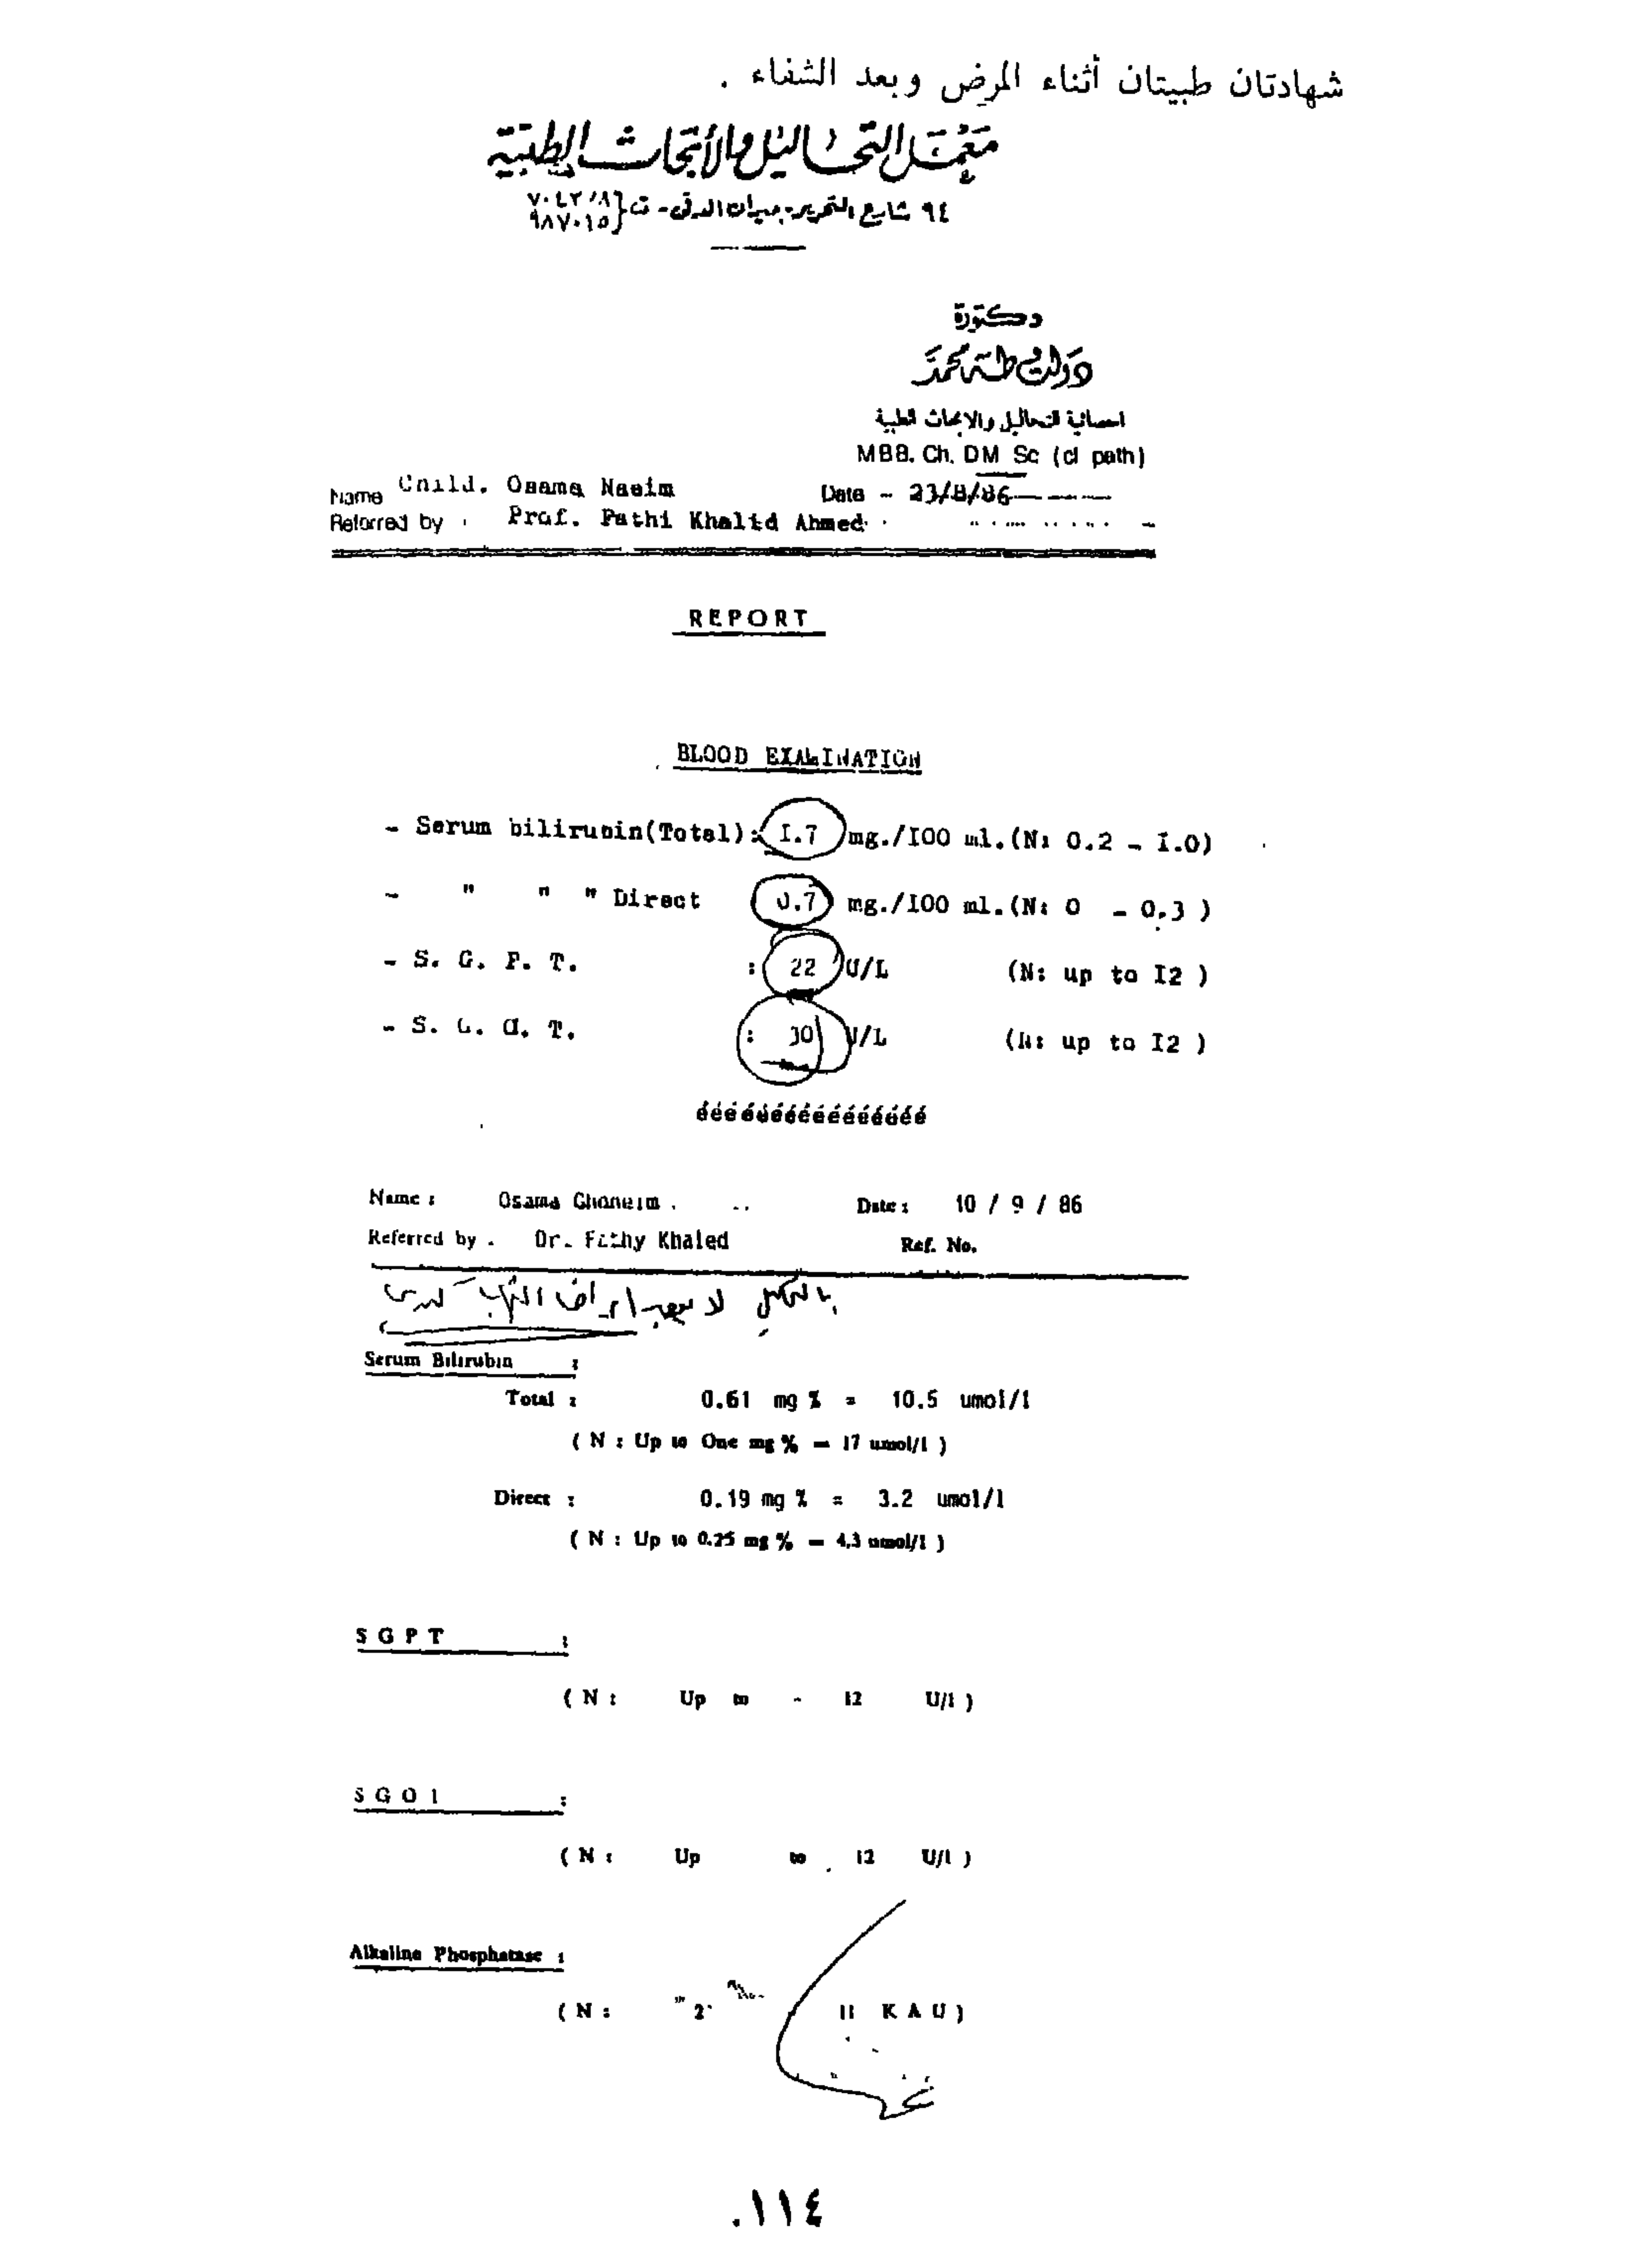 شهادتان طبيتان أثناء المرض وبعد الشفاء .
معمل التحاليل والأبحاث الطبية
٩٤ شارع التحرير - ميدان الدقى - ت
٩٨٧٠١٥
دكتورة
دولت طه محمد
اخصائية التحاليل والابحاث الطبية
MBB. Ch. DM Sc (cl path)
Name Child. Osama Naeim Date - 23/8/86
Referred by Prof. Fathi Khalid Ahmed
REPORT
BLOOD EXAMINATION
- Serum bilirubin(Total): I.7 mg./I00 ml.(N: 0.2 - I.0)
- " " " Direct 0.7 mg./I00 ml.(N: 0 - 0.3 )
- S. G. P. T. : 22 U/L (N: up to I2 )
- S. G. O. T. : 30 U/L (N: up to I2 )
éééééééééééééééé
Name : Osama Ghoneim . Date : 10 / 9 / 86
Referred by . Dr. Fathy Khaled Ref. No.
Serum Bilirubin :
Total : 0.61 mg % = 10.5 umol/l
( N : Up to One mg % — 17 umol/l )
Direct : 0.19 mg % = 3.2 umol/l
( N : Up to 0.25 mg % — 4.3 umol/l )
S G P T :
( N : Up to - 12 U/l )
S G O T :
( N : Up to 12 U/l )
Alkaline Phosphatase :
( N : 2 11 K A U )
١١٤.